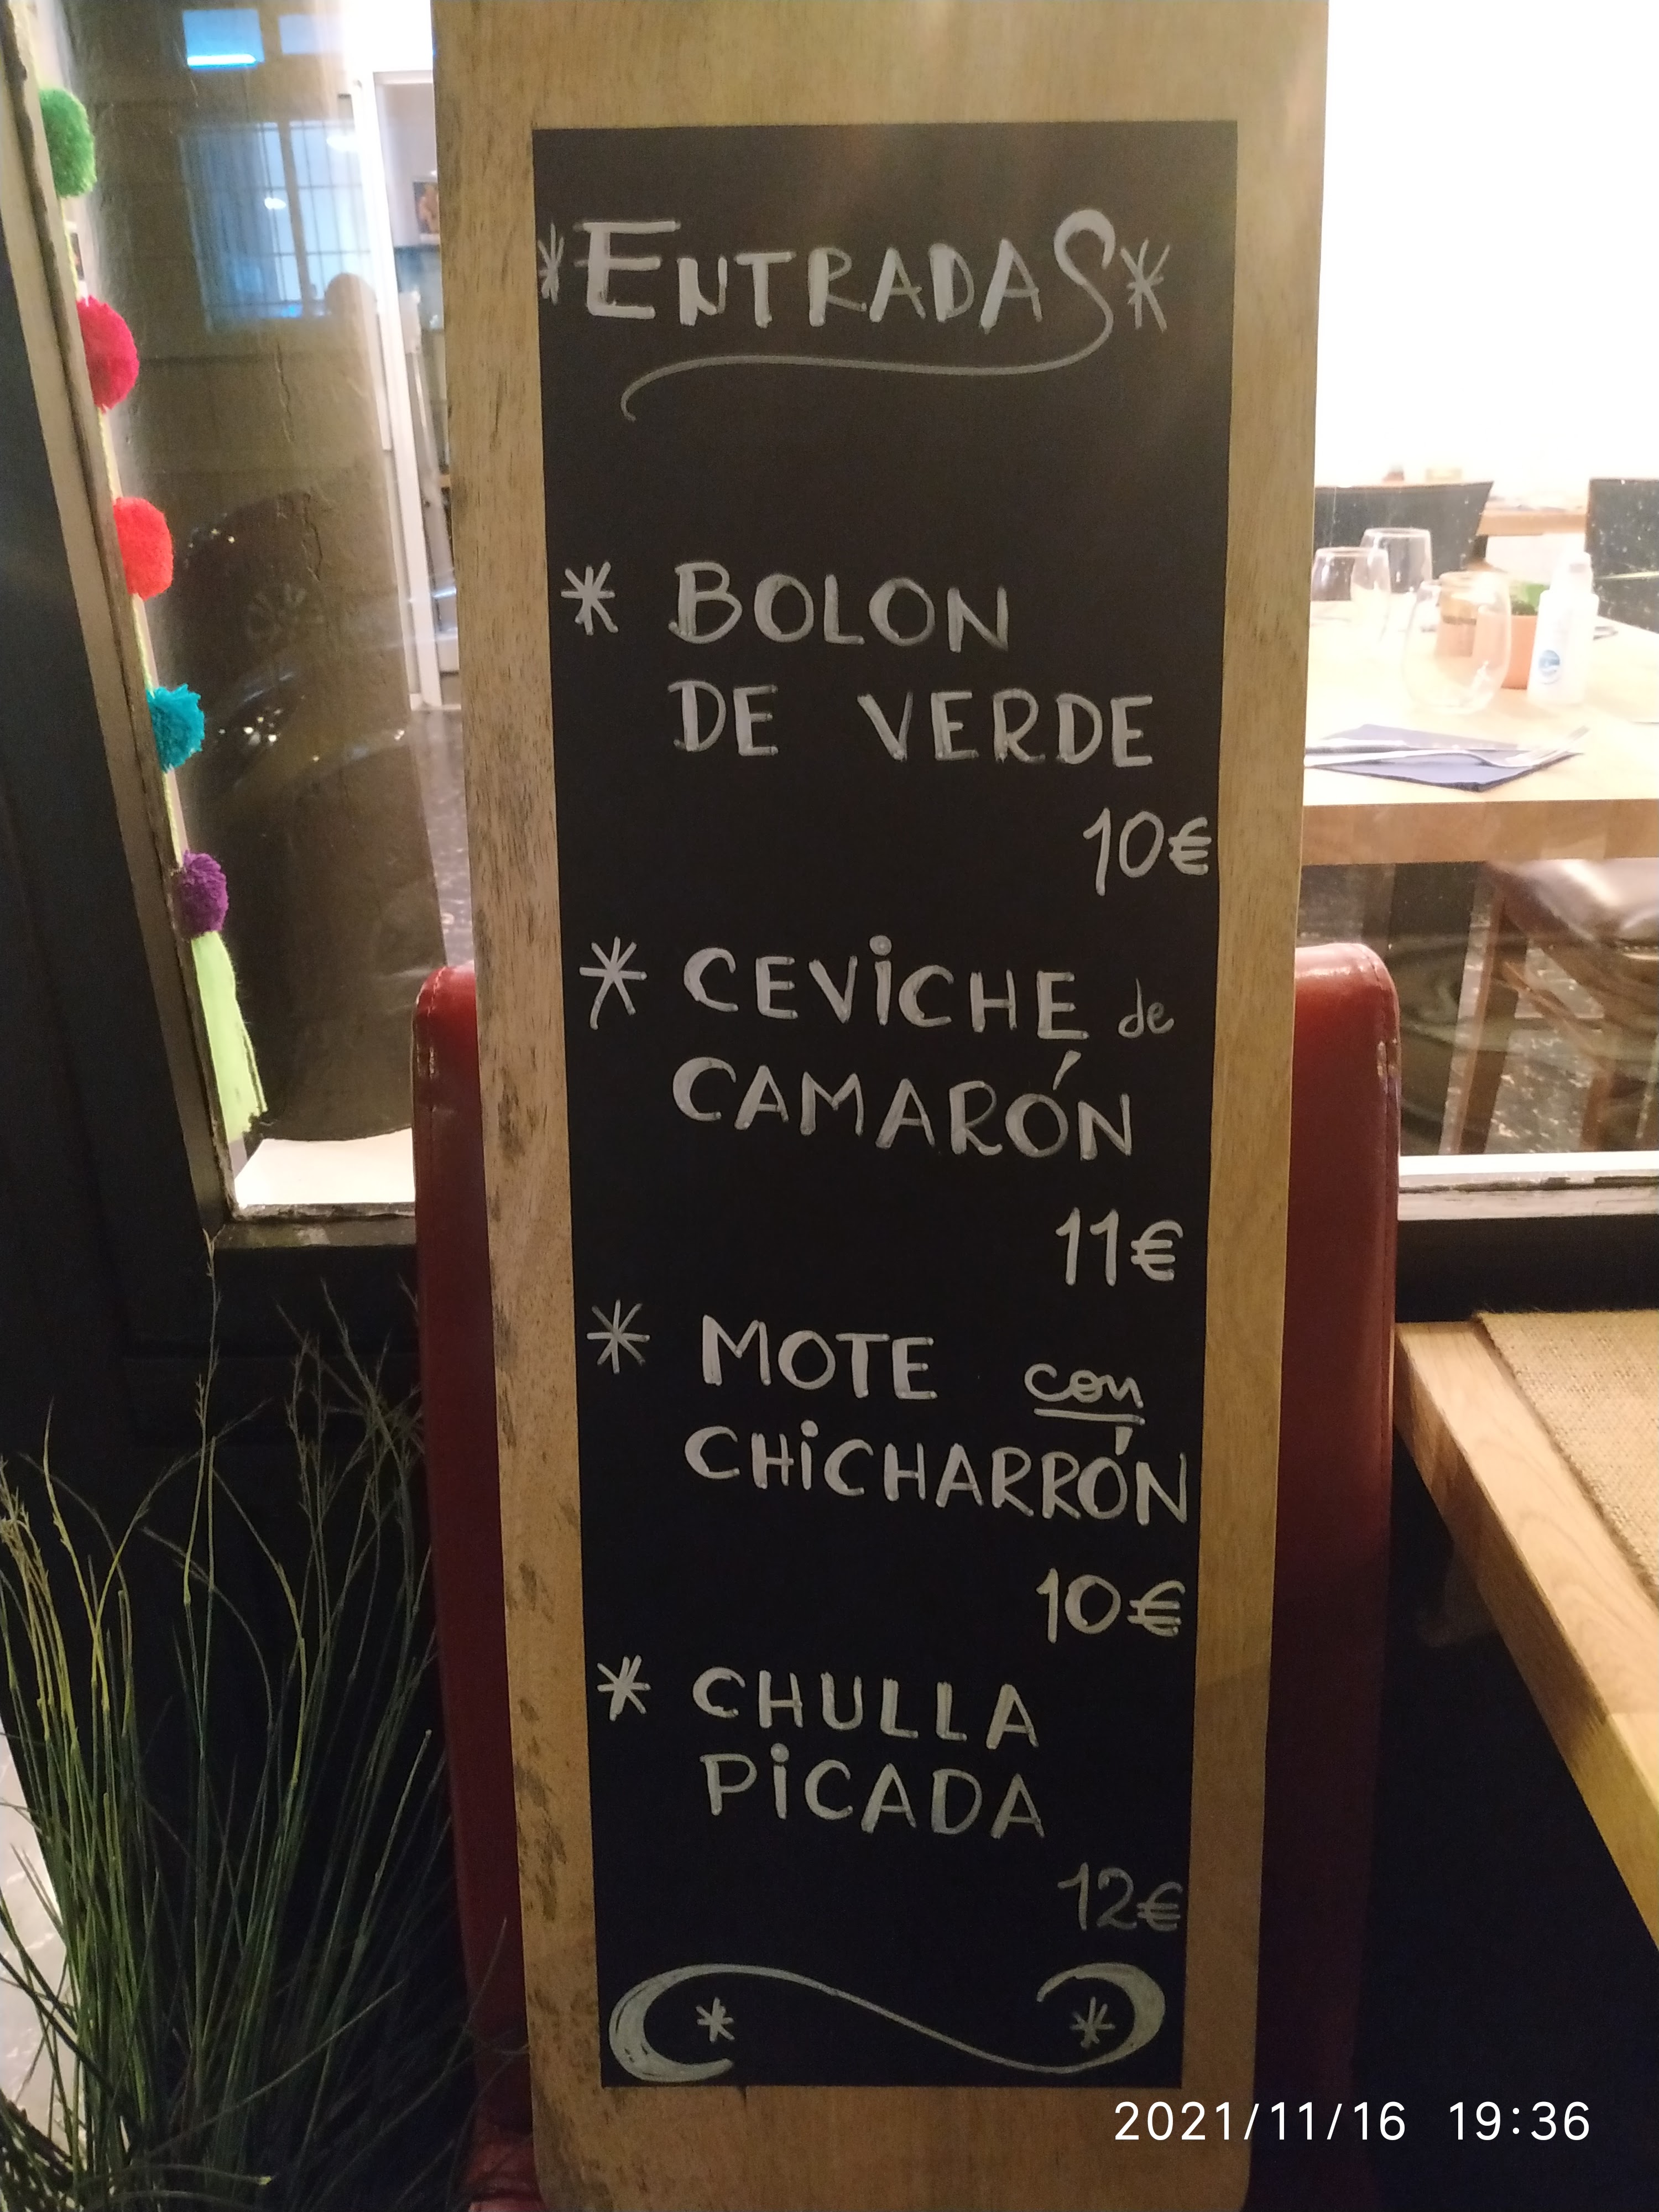 *ENTRADAS*
* BOLON
DE VERDE
10€
* CEViCHE de
CAMARÓN
11€
* MOTE con
CHiCHARRÓN
10€
* CHULLA
PiCADA
12€
2021/11/16 19:36